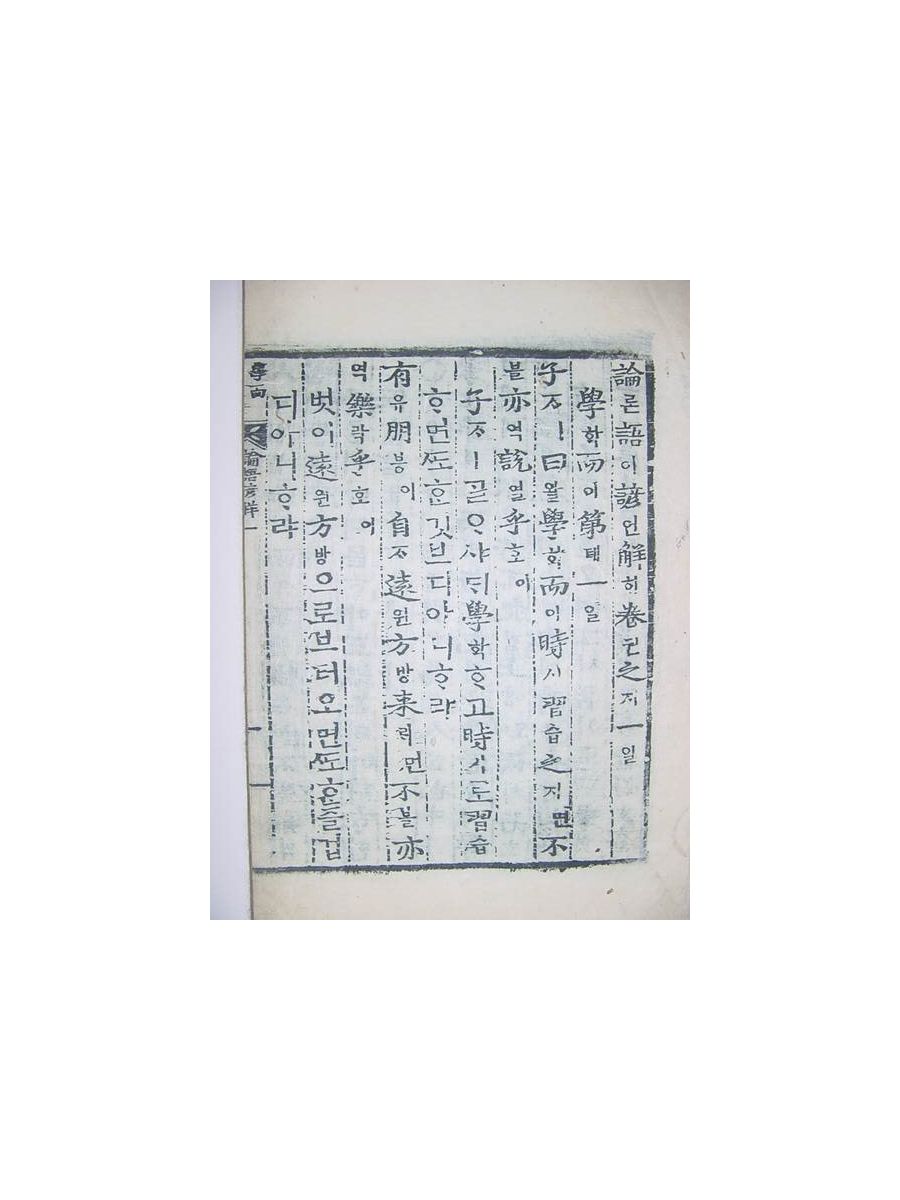 論론語어諺언解ᄒᆡ卷권之지一일
學학而이第뎨一일
子ᄌᆞㅣ曰왈學ᄒᆞᆨ而이時시習습之지면不
블亦역說열乎호아
子ᄌᆞㅣᄀᆞᆯᄋᆞ샤ᄃᆡ學ᄒᆞᆨᄒᆞ고時시로習습
ᄒᆞ면ᄯᅩᄒᆞᆫ깃브디아니ᄒᆞ랴
有유朋븡이自ᄌᆞ遠원方방來ᄅᆡ면不블亦
역樂락乎호아
벗이遠원方방으로브터오면ᄯᅩᄒᆞᆫ즐겁
디아니ᄒᆞ랴
論語諺解 一